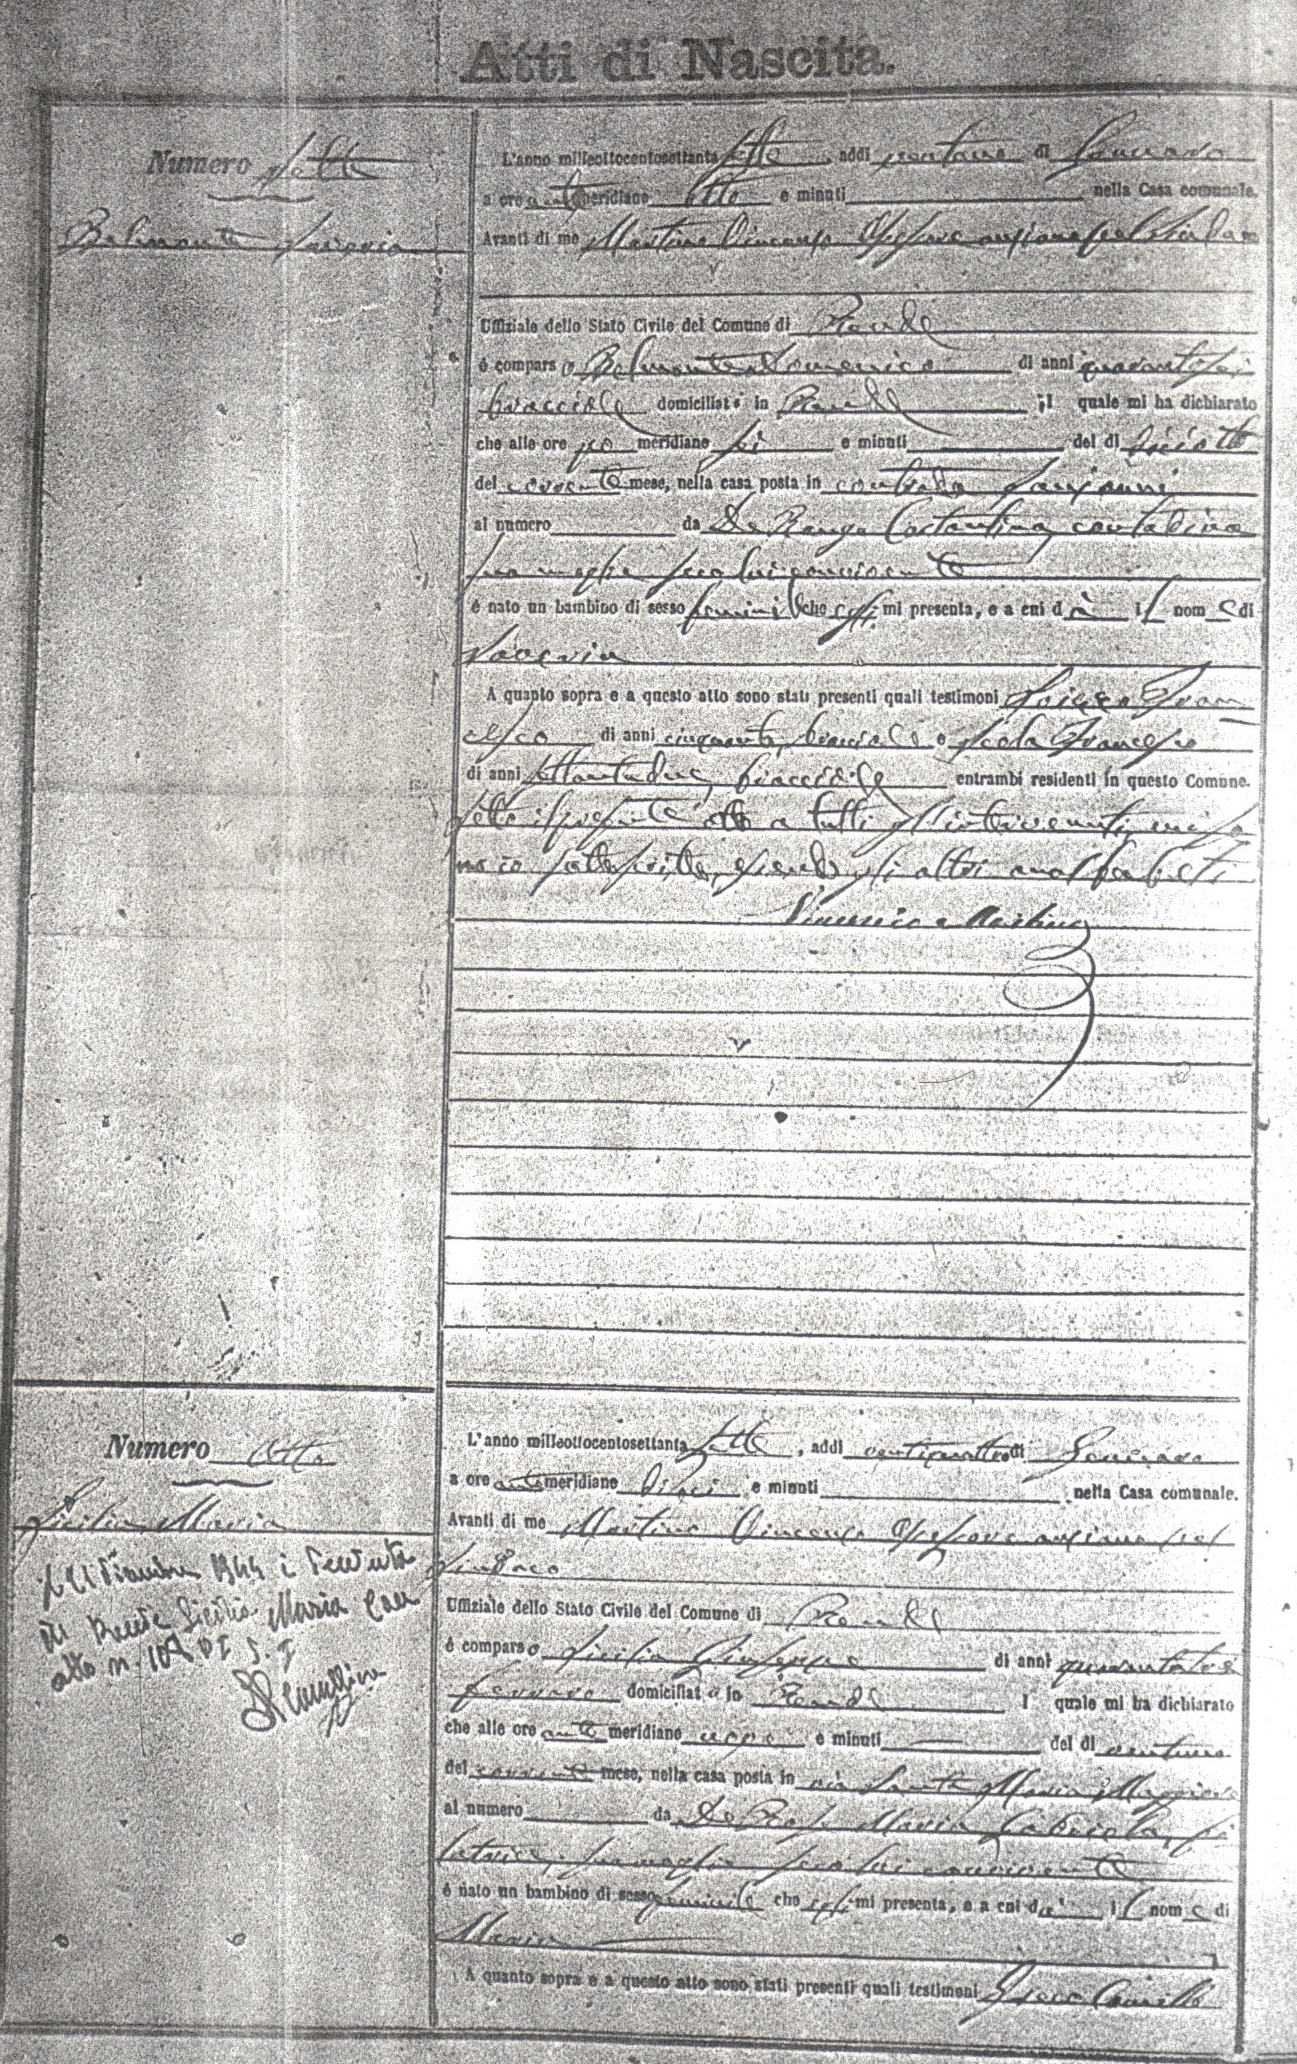 Atti di Nascita.
Numero sette
Belmonte Saveria
L'anno milleottocentosettanta sette, addi ventuno di Gennaro
a ore antimeridiane otto e minuti nella Casa comunale.
Avanti di me Martino Vincenzo Assessore anziano pel Sindaco
Uffiziale dello Stato Civile del Comune di Rende
è comparso Belmonte Domenico di anni quarantasei
bracciale domiciliato in Rende il quale mi ha dichiarato
che alle ore po meridiane sei e minuti del di diciotto
del corrente mese, nella casa posta in contrada
al numero da De Rango Costantina, contadina
sua moglie seco lui convivente
è nato un bambino di sesso feminile che egli mi presenta, e a cui dà il nome di
Saveria
A quanto sopra e a questo atto sono stati presenti quali testimoni Fran
cesco di anni cinquanta, bracciale e Scola Francesco
di anni settantadue, bracciale entrambi residenti in questo Comune.
Letto il presente atto a tutti gl'intervenuti, mi so
no io sottoscritto, essendo gli altri analfabeti
Vincenzo Martino
Numero Otto
Sicilia Maria
L'anno milleottocentosettanta sette, addi ventiquattro di Gennaro
a ore antimeridiane dieci e minuti nella Casa comunale.
Avanti di me Martino Vincenzo Assessore anziano pel
Sindaco
Uffiziale dello Stato Civile del Comune di Rende
è comparso Sicilia Giuseppe di anni quarantatre
ferraro domiciliato in Rende il quale mi ha dichiarato
che alle ore anti meridiane e minuti del di ventuno
del corrente mese, nella casa posta in via Santa Maria Maggiore
al numero da De Rose Maria Gabriela, fi
latrice, sua moglie seco lui convivente
è nato un bambino di sesso feminile che egli mi presenta, e a cui dà il nome di
Maria
A quanto sopra e a questo atto sono stati presenti quali testimoni Greco Camillo
1944 è deceduta
in Rende Sicilia Maria
atto n. 108 PI S. I